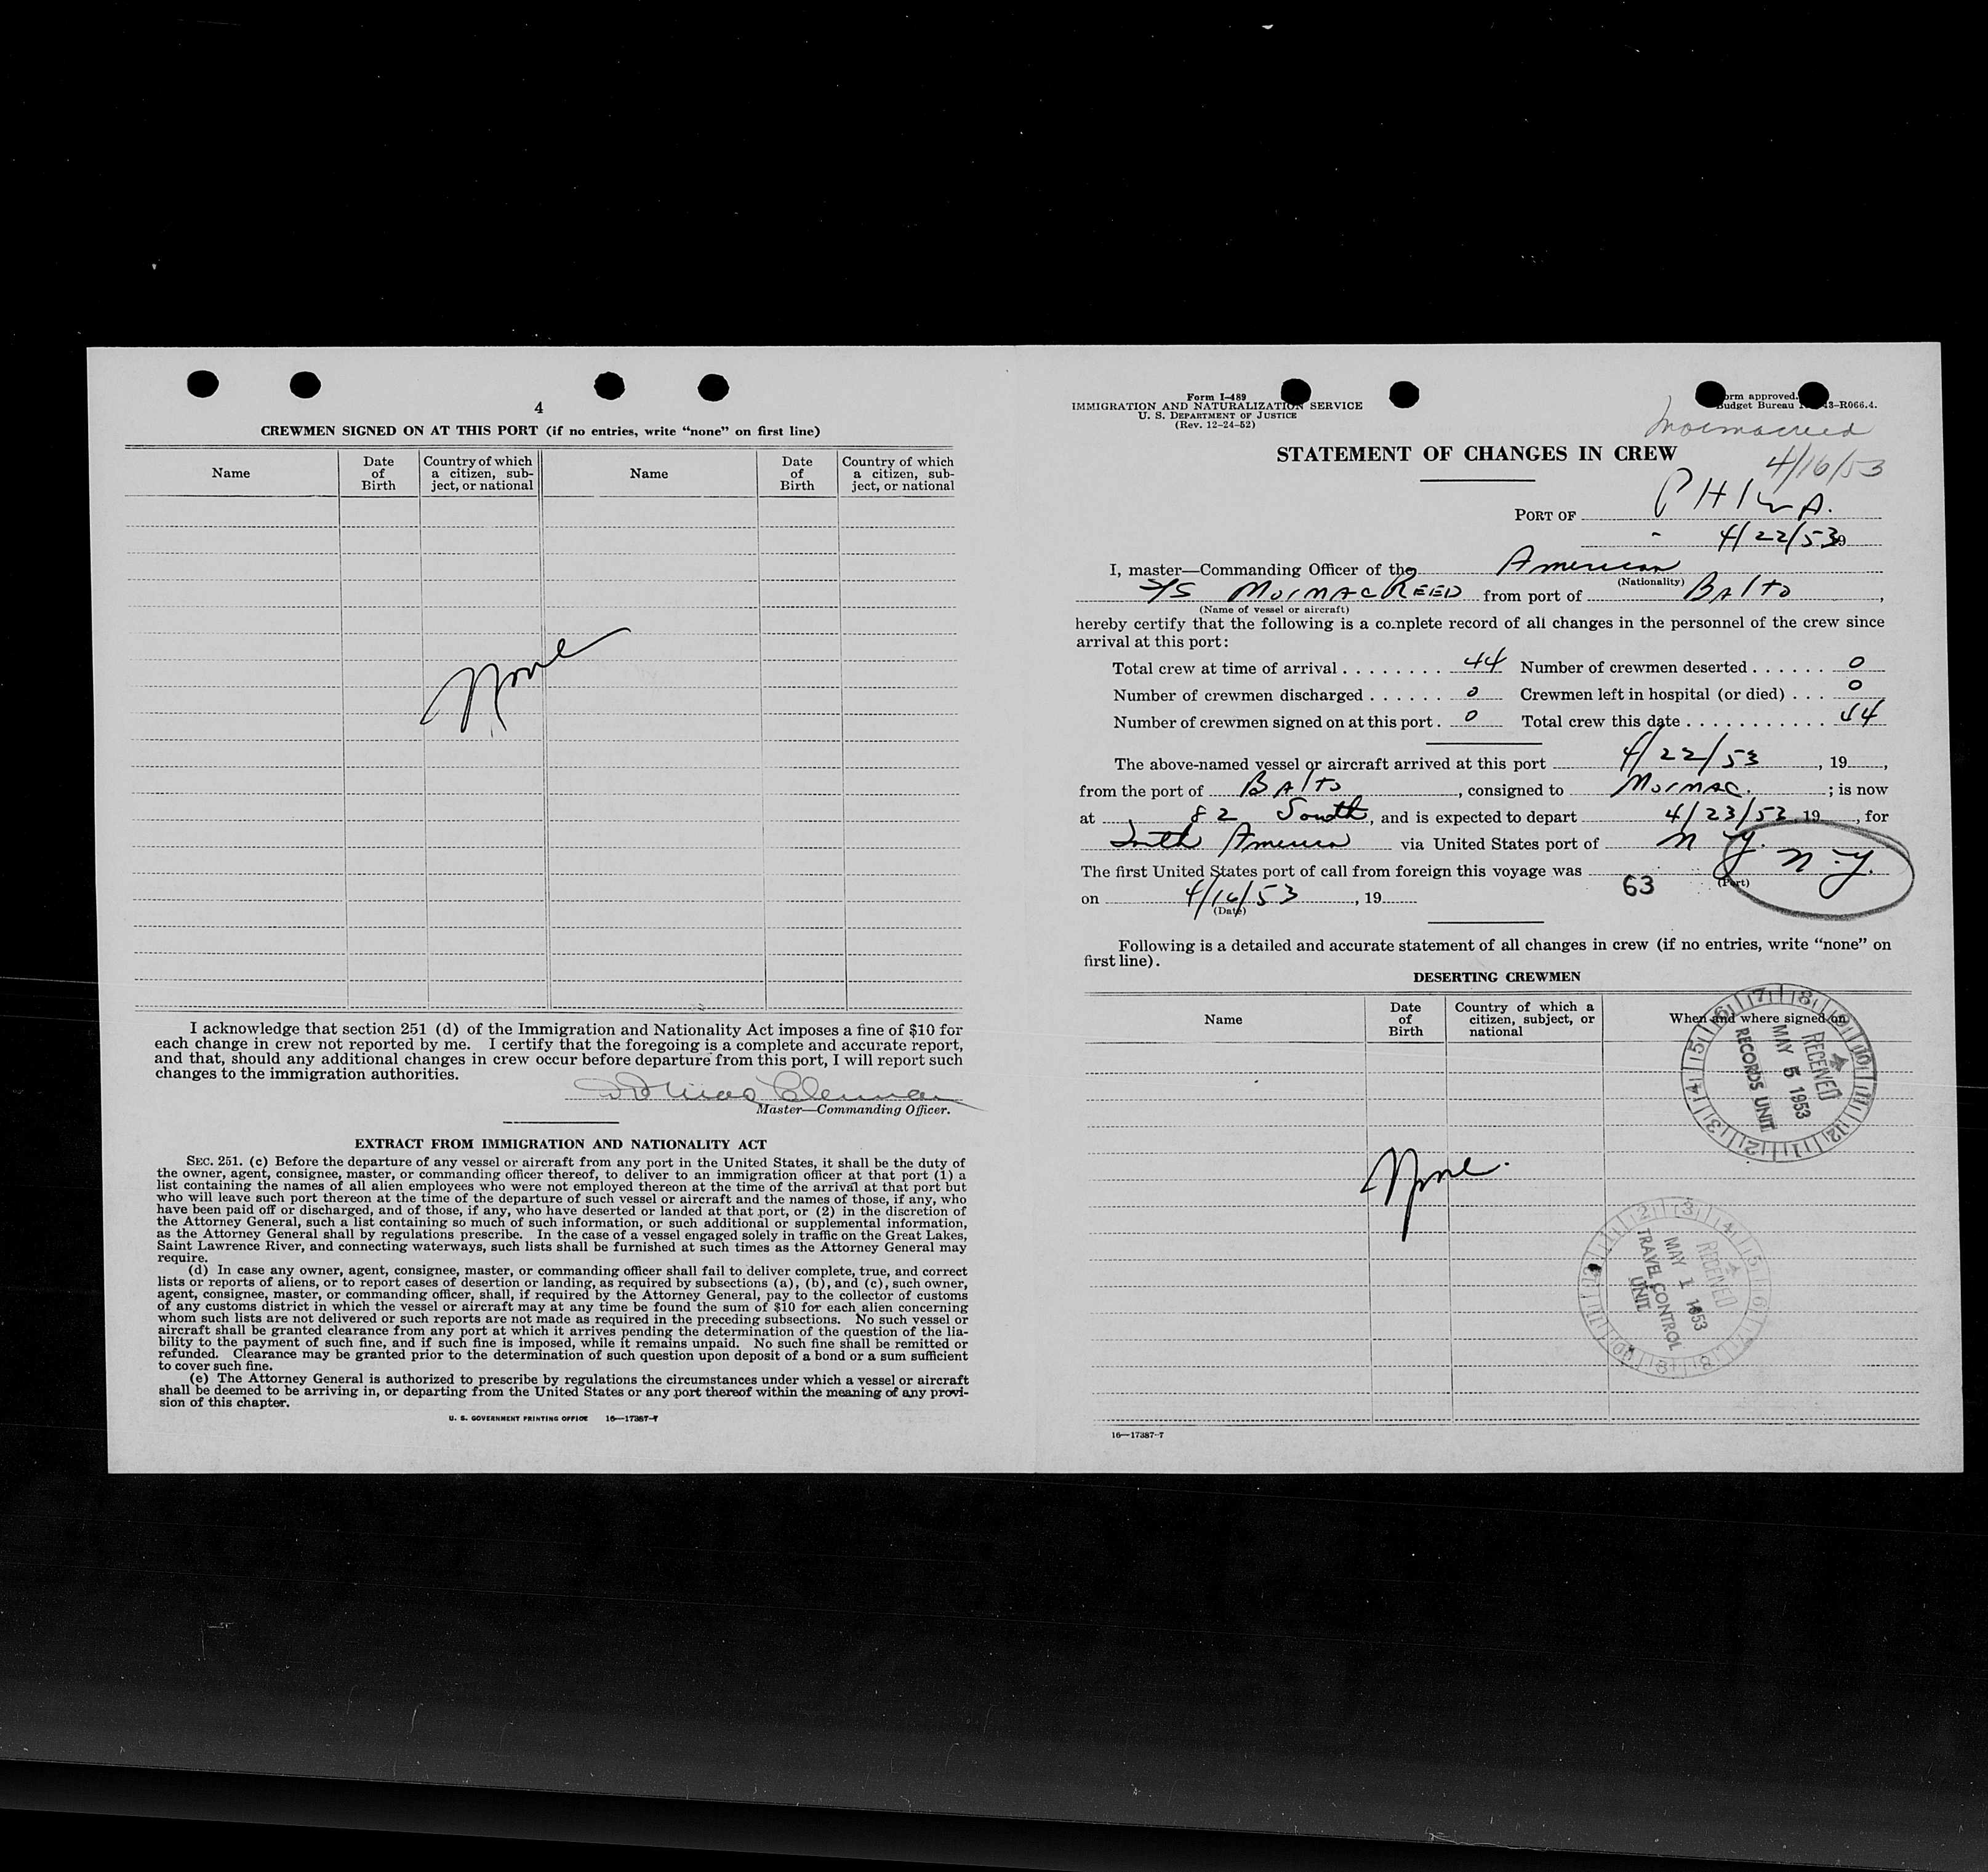 4
CREWMEN SIGNED ON AT THIS PORT (if no entries, write “none” on first line)
Name
Date of Birth
Country of which a citizen, sub-ject, or national
Name
Date of Birth
Country of which a citizen, sub-ject, or national
None
I acknowledge that section 251 (d) of the Immigration and Nationality Act imposes a fine of $10 for
each change in crew not reported by me. I certify that the foregoing is a complete and accurate report,
and that, should any additional changes in crew occur before departure from this port, I will report such
changes to the immigration authorities.
Master—Commanding Officer.
EXTRACT FROM IMMIGRATION AND NATIONALITY ACT
SEC. 251. (c) Before the departure of any vessel or aircraft from any port in the United States, it shall be the duty of
the owner, agent, consignee, master, or commanding officer thereof, to deliver to an immigration officer at that port (1) a
list containing the names of all alien employees who were not employed thereon at the time of the arrival at that port but
who will leave such port thereon at the time of the departure of such vessel or aircraft and the names of those, if any, who
have been paid off or discharged, and of those, if any, who have deserted or landed at that port, or (2) in the discretion of
the Attorney General, such a list containing so much of such information, or such additional or supplemental information,
as the Attorney General shall by regulations prescribe. In the case of a vessel engaged solely in traffic on the Great Lakes,
Saint Lawrence River, and connecting waterways, such lists shall be furnished at such times as the Attorney General may
require.
(d) In case any owner, agent, consignee, master, or commanding officer shall fail to deliver complete, true, and correct
lists or reports of aliens, or to report cases of desertion or landing, as required by subsections (a), (b), and (c), such owner,
agent, consignee, master, or commanding officer, shall, if required by the Attorney General, pay to the collector of customs
of any customs district in which the vessel or aircraft may at any time be found the sum of $10 for each alien concerning
whom such lists are not delivered or such reports are not made as required in the preceding subsections. No such vessel or
aircraft shall be granted clearance from any port at which it arrives pending the determination of the question of the lia-
bility to the payment of such fine, and if such fine is imposed, while it remains unpaid. No such fine shall be remitted or
refunded. Clearance may be granted prior to the determination of such question upon deposit of a bond or a sum sufficient
to cover such fine.
(e) The Attorney General is authorized to prescribe by regulations the circumstances under which a vessel or aircraft
shall be deemed to be arriving in, or departing from the United States or any port thereof within the meaning of any provi-
sion of this chapter.
U. S. GOVERNMENT PRINTING OFFICE 16—17387-7
Form I-489
IMMIGRATION AND NATURALIZATION SERVICE
U. S. DEPARTMENT OF JUSTICE
(Rev. 12-24-52)
orm approved.
udget Bureau 43-R066.4.
Mormacreed
4/16/53
STATEMENT OF CHANGES IN CREW
PORT OF PHILA.
4/22/53
I, master—Commanding Officer of the American
(Nationality)
S/S MormacREED from port of Balto,
(Name of vessel or aircraft)
hereby certify that the following is a complete record of all changes in the personnel of the crew since
arrival at this port:
Total crew at time of arrival . . . . . . . . 44 Number of crewmen deserted . . . . . . 0
Number of crewmen discharged . . . . . . 0 Crewmen left in hospital (or died) . . . 0
Number of crewmen signed on at this port . 0 Total crew this date . . . . . . . . . . . . 44
The above-named vessel or aircraft arrived at this port 4/22/53, 19,
from the port of Balto, consigned to Mormac.; is now
at 82 South, and is expected to depart 4/23/53, 19, for
South America via United States port of N.Y.
The first United States port of call from foreign this voyage was N.Y.
(Port)
63
on 4/16/53, 19
(Date)
Following is a detailed and accurate statement of all changes in crew (if no entries, write “none” on
first line).
DESERTING CREWMEN
Name
Date of Birth
Country of which a citizen, subject, or national
When and where signed on
RECEIVED
MAY 5 1953
RECORDS UNIT
None.
RECEIVED
MAY 1 1953
TRAVEL CONTROL
UNIT
16—17387-7